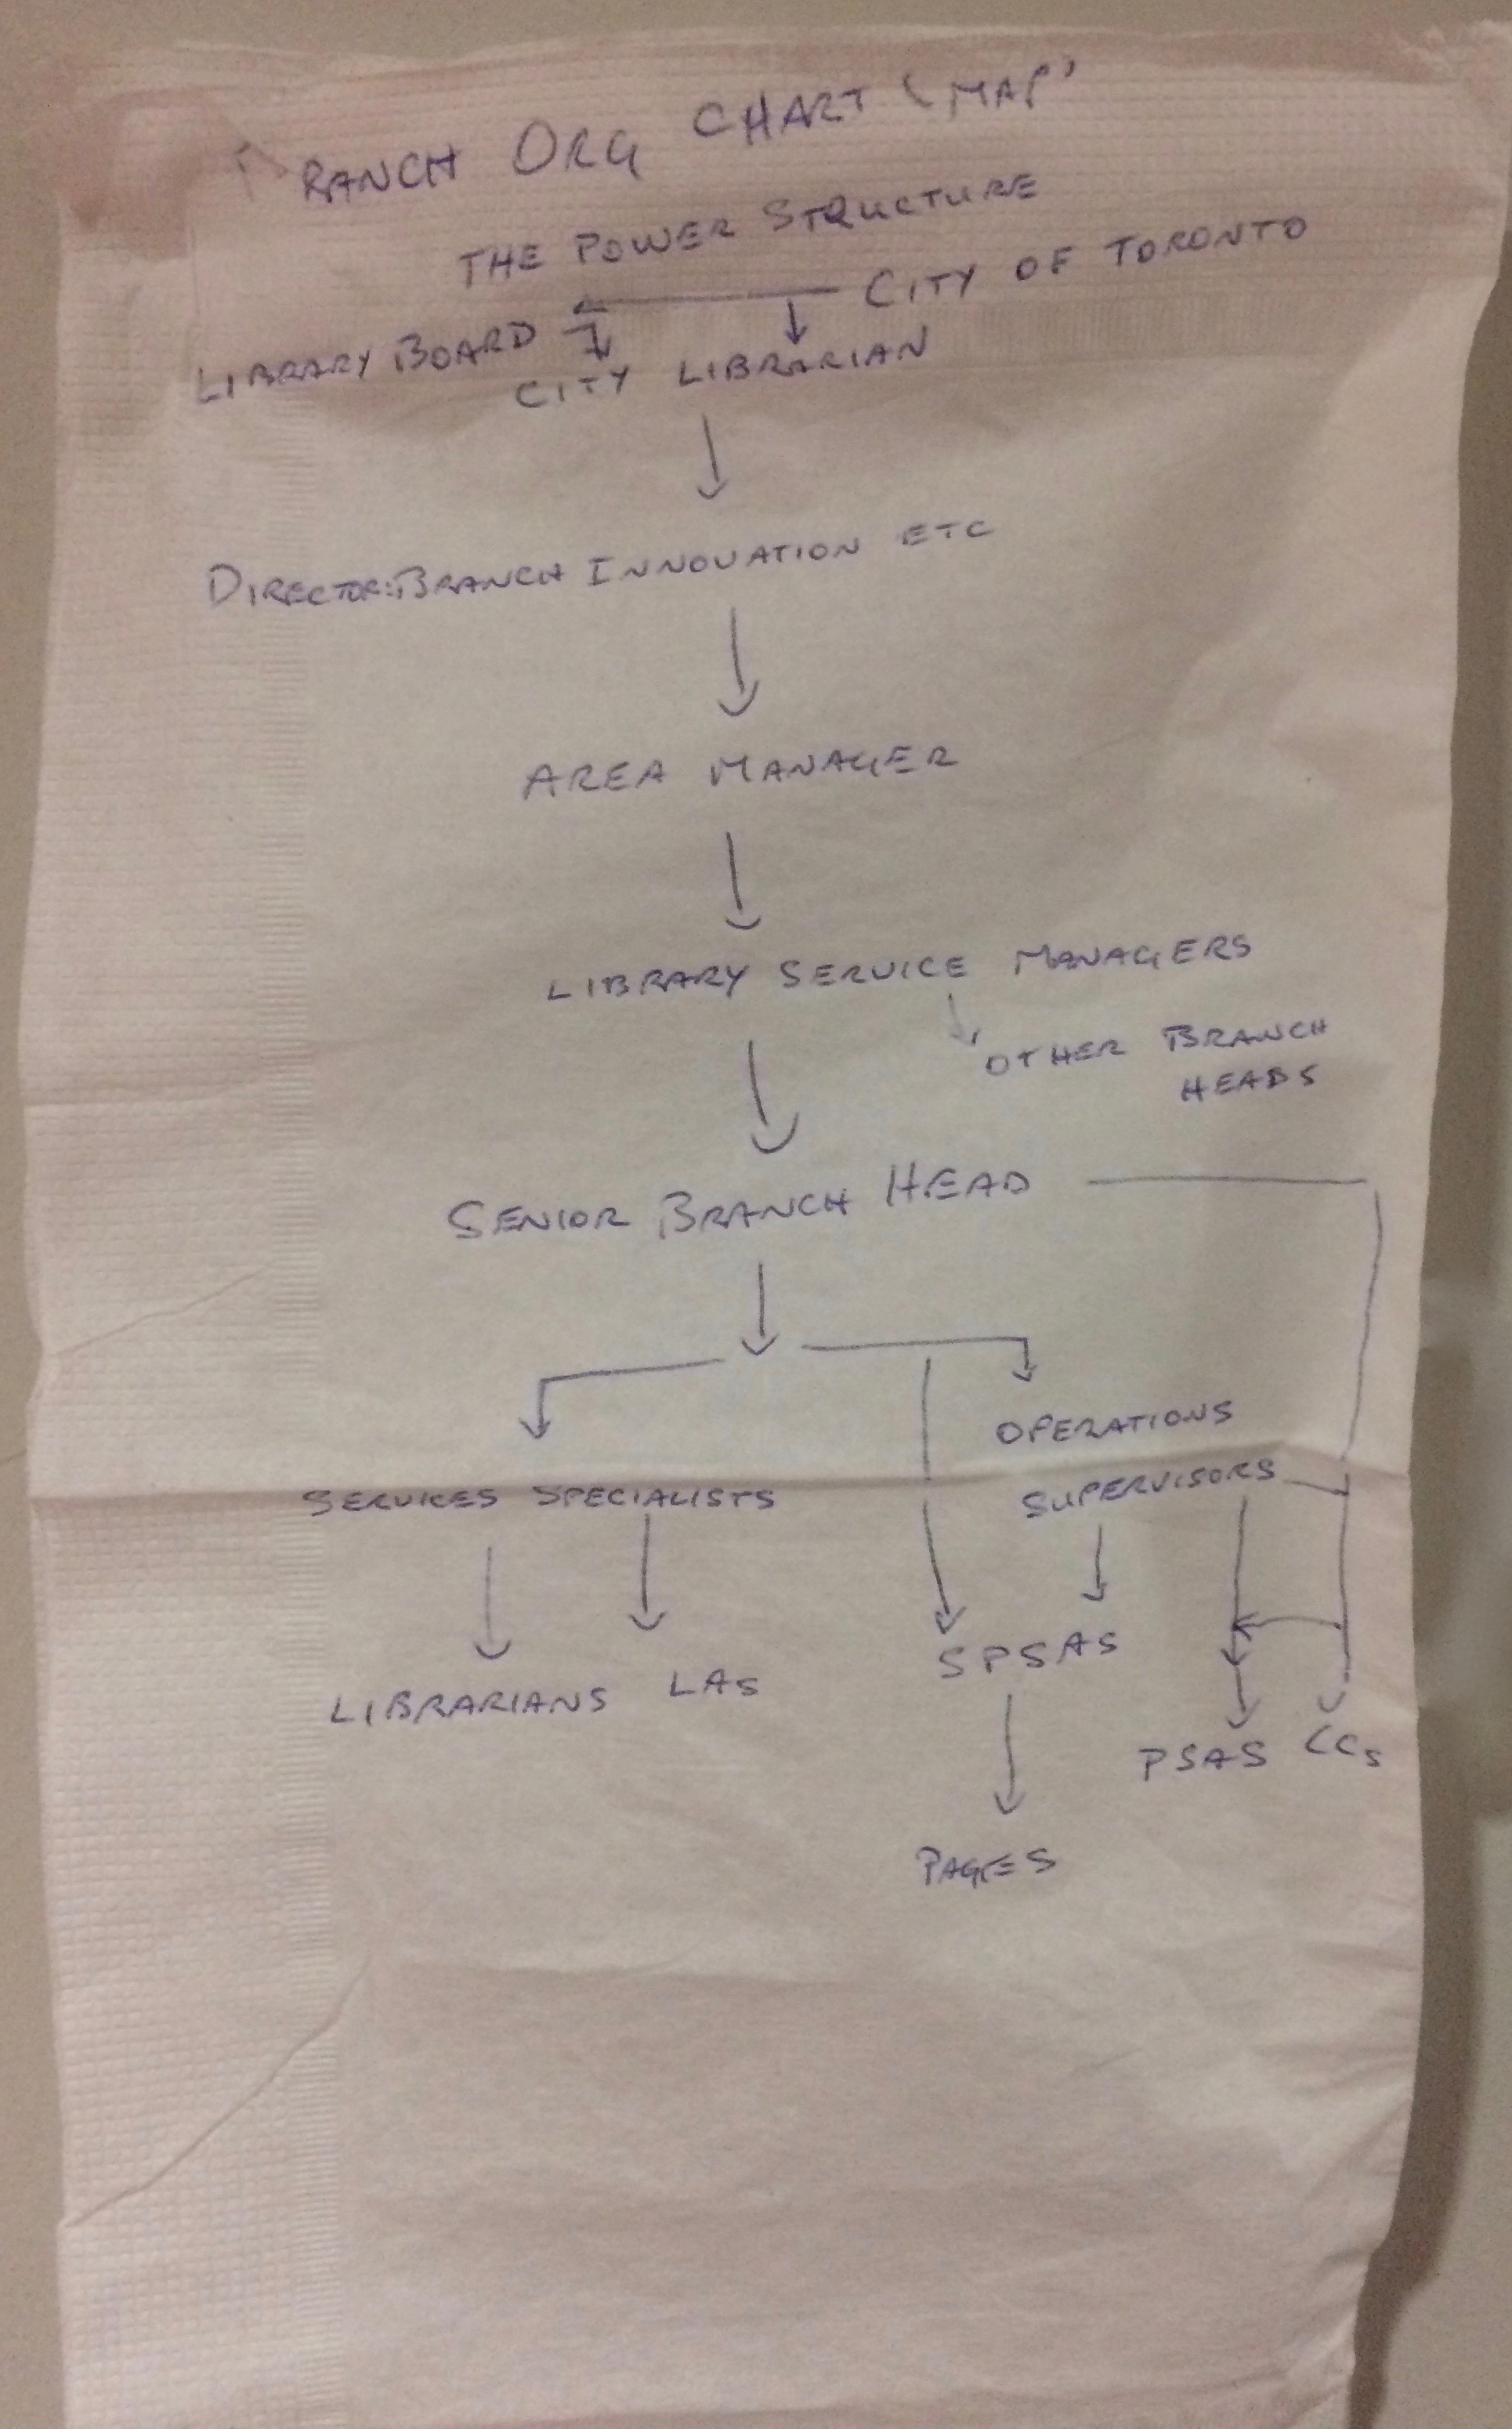 BRANCH ORG CHART 'MAP'
THE POWER STRUCTURE
CITY OF TORONTO
LIBRARY BOARD
CITY LIBRARIAN
DIRECTOR: BRANCH INNOVATION ETC
AREA MANAGER
LIBRARY SERVICE MANAGERS
OTHER BRANCH
HEADS
SENIOR BRANCH HEAD
OPERATIONS
SUPERVISORS
SERVICES SPECIALISTS
SPSAS
LIBRARIANS LAs
PSAS CCs
PAGES